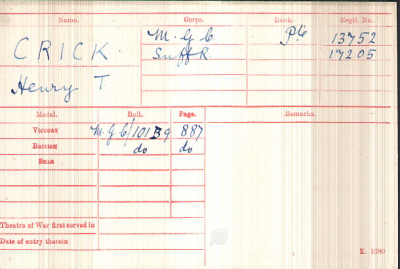 Name. Corps. Rank. Regtl. No.
CRICK. M.G.C Pte 13752
Henry T Suff R. 17205
Medal. Roll. Page. Remarks.
VICTORY M.G.C/101B9 887
BRITISH do do
STAR
Theatre of War first served in
Date of entry therein
K. 1380